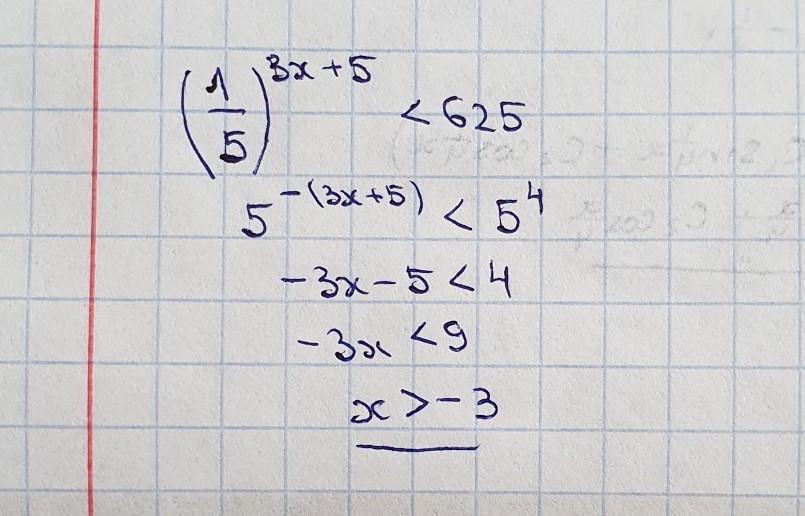 (1/5)^(3x+5) < 625
5^(-(3x+5)) < 5^4
-3x - 5 < 4
-3x < 9
x > -3